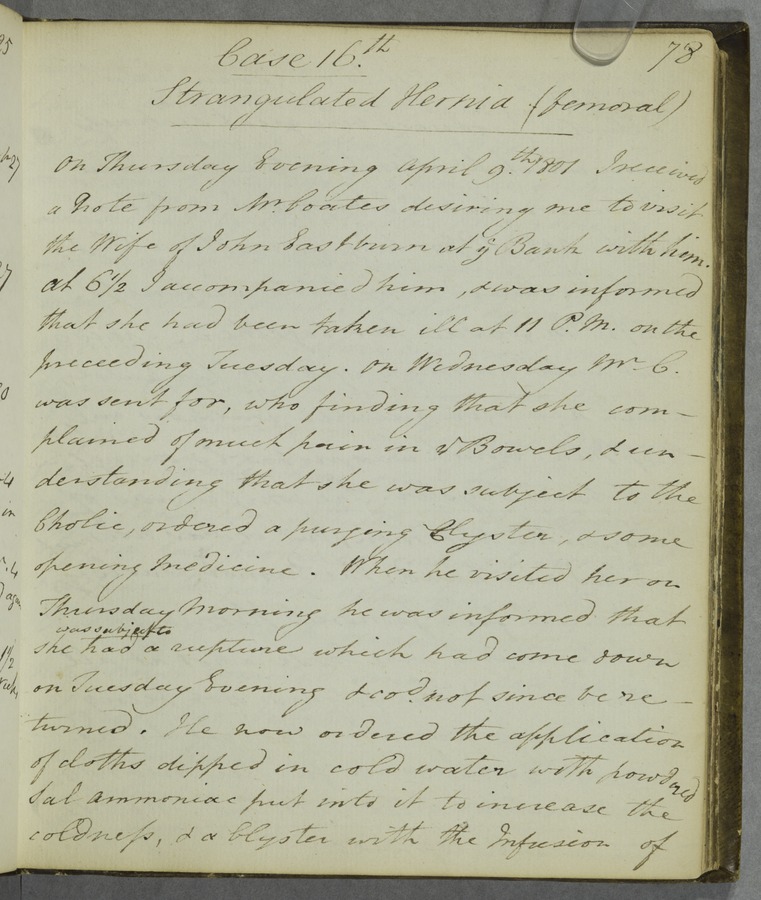 78
Case 16.th
Strangulated Hernia (femoral)
On Thursday Evening April 9.th 1801 I received
a Note from Mr. Coates desiring me to visit
the Wife of John Eastburn at ye Bank with him.
at 6 1/2 I accompanied him, & was informed
that she had been taken ill at 11 P.M. on the
preceeding Tuesday. On Wednesday Mr. C.
was sent for, who finding that she com-
plained of much pain in ye Bowels, & un-
derstanding that she was subject to the
Cholic, ordered a purging Clyster, & some
opening Medicine. When he visited her on
Thursday Morning he was informed that
was subject to
she had a rupture which had come down
on Tuesday Evening & cod. not since be re-
turned. He now ordered the application
of cloths dipped in cold water with powdered
Sal ammoniac put into it to increase the
coldness, & a Clyster with the Infusion of